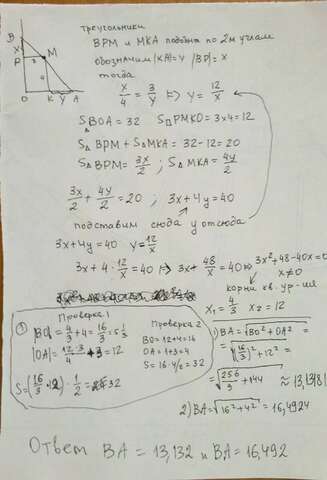 B
X
P
3
M
4
O
K
Y
A
треугольники
BPM и MKA подобны по 2м углам
обозначим |KA|=Y |BP|=X
тогда
X/4 = 3/Y ⇒ Y = 12/X
S△BOA = 32 S□PMKO = 3x4 = 12
S△BPM + S△MKA = 32-12 = 20
S△BPM = 3X/2 ; S△MKA = 4Y/2
3X/2 + 4Y/2 = 20 ; 3X+4Y = 40
подставим сюда y отсюда
3X+4Y = 40 Y = 12/X
3X + 4·12/X = 40 ⇒ 3X + 48/X = 40 ⇒ 3X²+48-40X=0
X≠0
корни кв. ур-ия
X₁ = 4/3 X₂ = 12
① Проверка 1
|BO| = 4/3 + 4 = 16/3 = 5 1/3
|OA| = 12·3/4 + 3 = 12
S = (16/3 · 12) · 1/2 = 32
Проверка 2
BO = 12+4 = 16
OA = 1+3 = 4
S = 16·4/2 = 32
1) BA = √BO²+OA² =
= √(16/3)²+12² =
= √256/9 + 144 ≈ 13,13181
2) BA = √16²+4² = 16,4924
Ответ BA = 13,132 и BA = 16,492